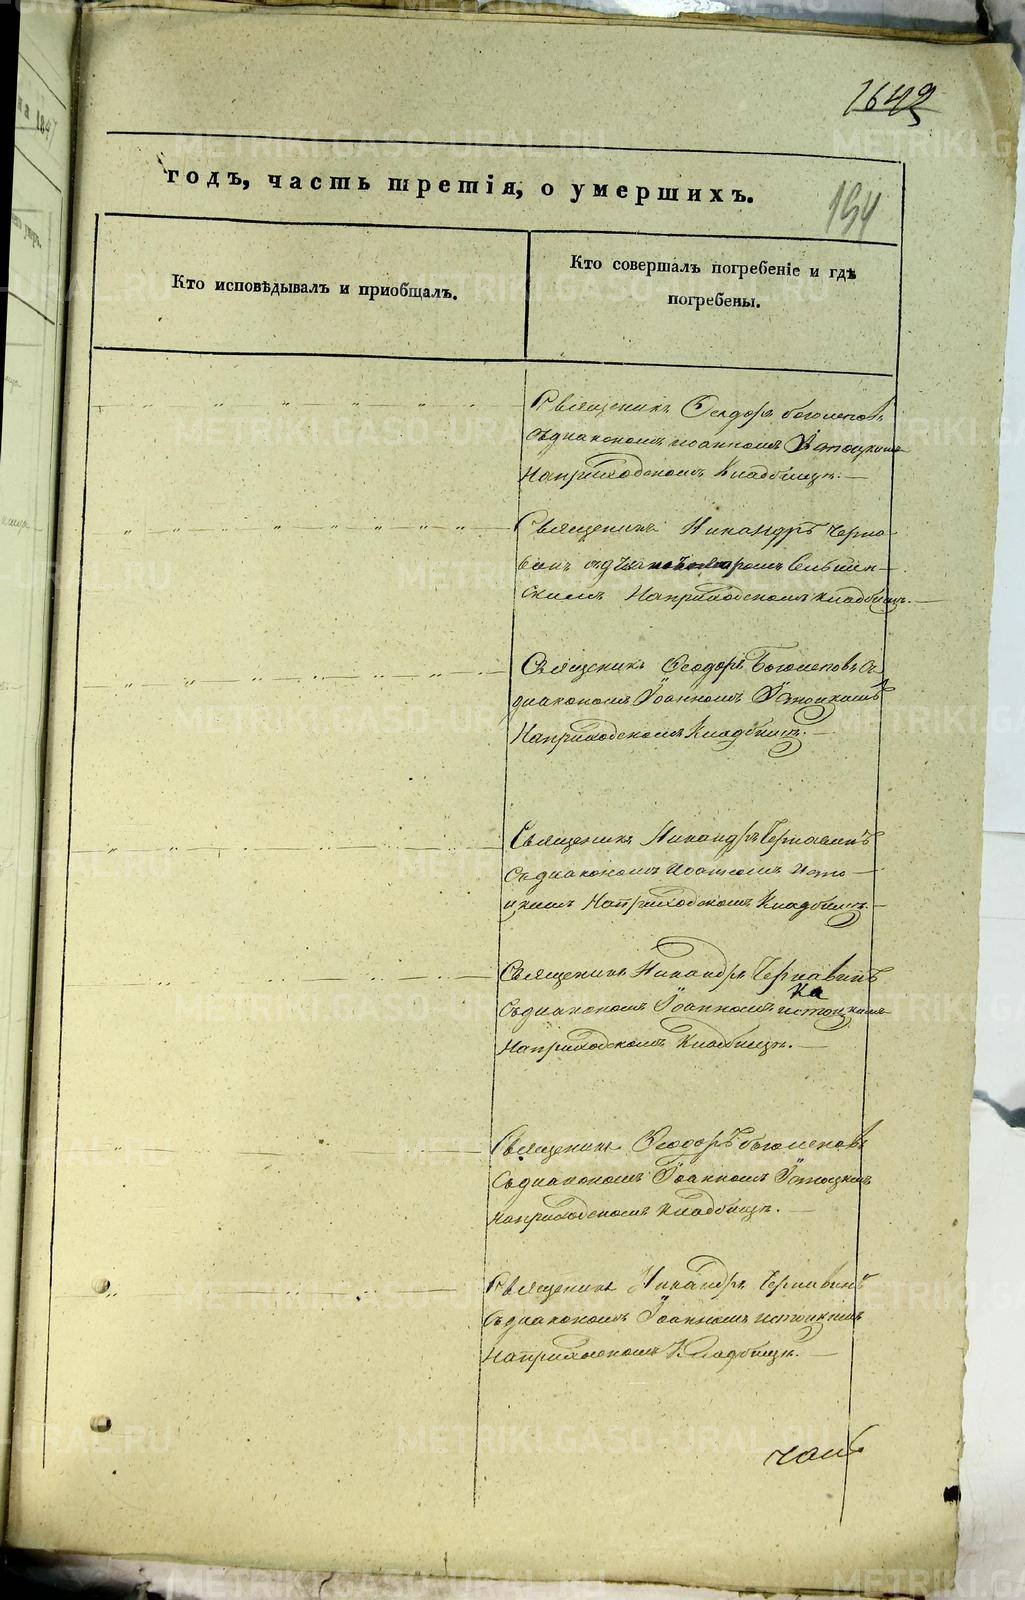 1642
годъ, часть третія, о умершихъ.
194
Кто исповѣдывалъ и пріобщалъ.
Кто совершалъ погребеніе и гдѣ
погребены.
Священникъ Ѳеодоръ Боголеповъ
съ діакономъ Іоанномъ Истоцкимъ
На приходскомъ Кладбищѣ.
Священникъ Никандръ Черна-
винъ
На приходскомъ кладбищѣ.
Священикъ Ѳеодоръ Боголеповъ съ
діакономъ Іоанномъ Истоцкимъ
На приходскомъ Кладбищѣ.
Священикъ Никандръ Чернавинъ
съ діакономъ Иоанномъ Исто-
цкимъ На приходскомъ Кладбищѣ.
Священикъ Никандръ Чернавинъ
съ діакономъ Іоанномъ истоцкимъ
На приходскомъ Кладбищѣ.
Священикъ Ѳеодоръ Боголеповъ
съ діакономъ Іоанномъ Истоцкимъ
на приходскомъ кладбищѣ.
Священикъ Никандръ Чернавинъ
съ діакономъ Іоанномъ истоцкимъ
На приходскомъ Кладбищѣ.
METRIKI.GASO-URAL.RU